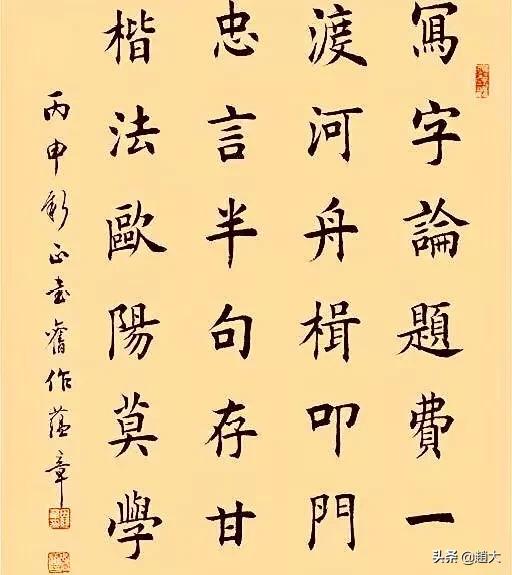 寫字論題費一
渡河舟楫叩門
忠言半句存甘
楷法歐陽莫學
丙申新正書舊作蘊章
头条@趙大